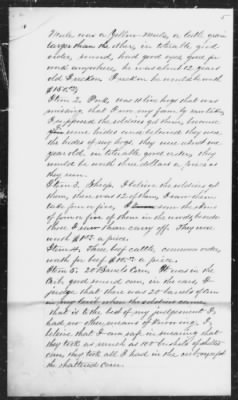 5
Mule was a yellow mule, a little
larger than the other, in tolerable good
order, sound, had good eyes good for
work anywhere, he was about 12 years
old I reckon. I reckon he was worth
Item 2. Pork, was 11 live hogs that was
missing that I am sure
I supposed the soldiers got them, because
some hides and believed they was
the hides of my hogs, they was about one
year old, in tolerable good order, they
would be worth three dollars a piece as
they run.
Item 3. Sheep. I believe the soldiers got
them, there was 12 of them, I saw them
take four or five, I saw the skins
of four or five of them in the woods besides
those I saw them carry off. They was
worth a piece.
Item 4. Three beef cattle, common order
worth for beef a piece.
Item 5. 20 Barrels Corn. It was in the
Crib, good sound corn, in the ears, I
judge that there was 20 barrels of corn
in my crib when the soldiers came
that is to the best of my judgement I
had no other means of knowing, I
believe that I am safe in swearing that
they took as much as 100 bushels of shelled
corn, they took all I had in the crib except
the shattered corn.